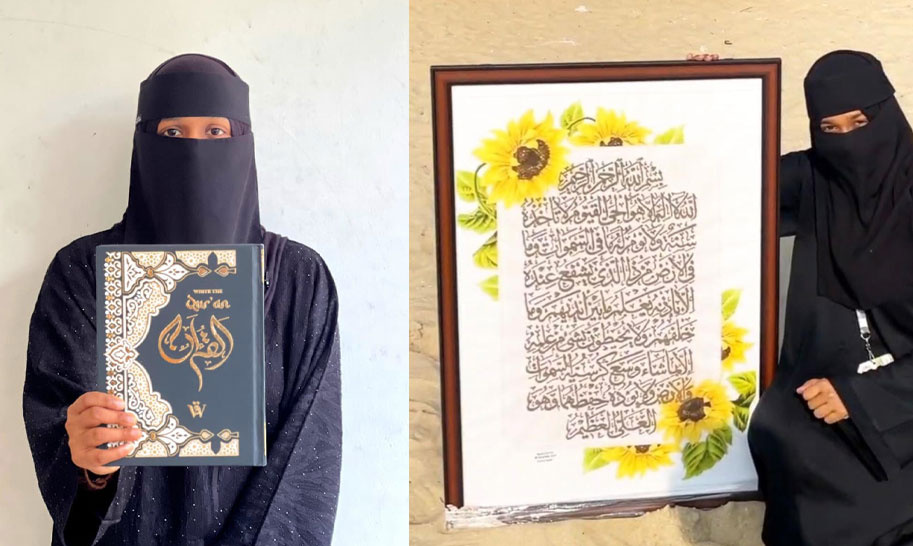 WRITE THE
Qur'an
القرآن
بسم الله الرحمن الرحيم
الله لا إله إلا هو الحي القيوم لا تأخذه
سنة ولا نوم له ما في السموات وما
في الأرض من ذا الذي يشفع عنده
إلا بإذنه يعلم ما بين أيديهم وما
خلفهم ولا يحيطون بشيء من علمه
إلا بما شاء وسع كرسيه السموات
والأرض ولا يؤده حفظهما وهو
العلي العظيم